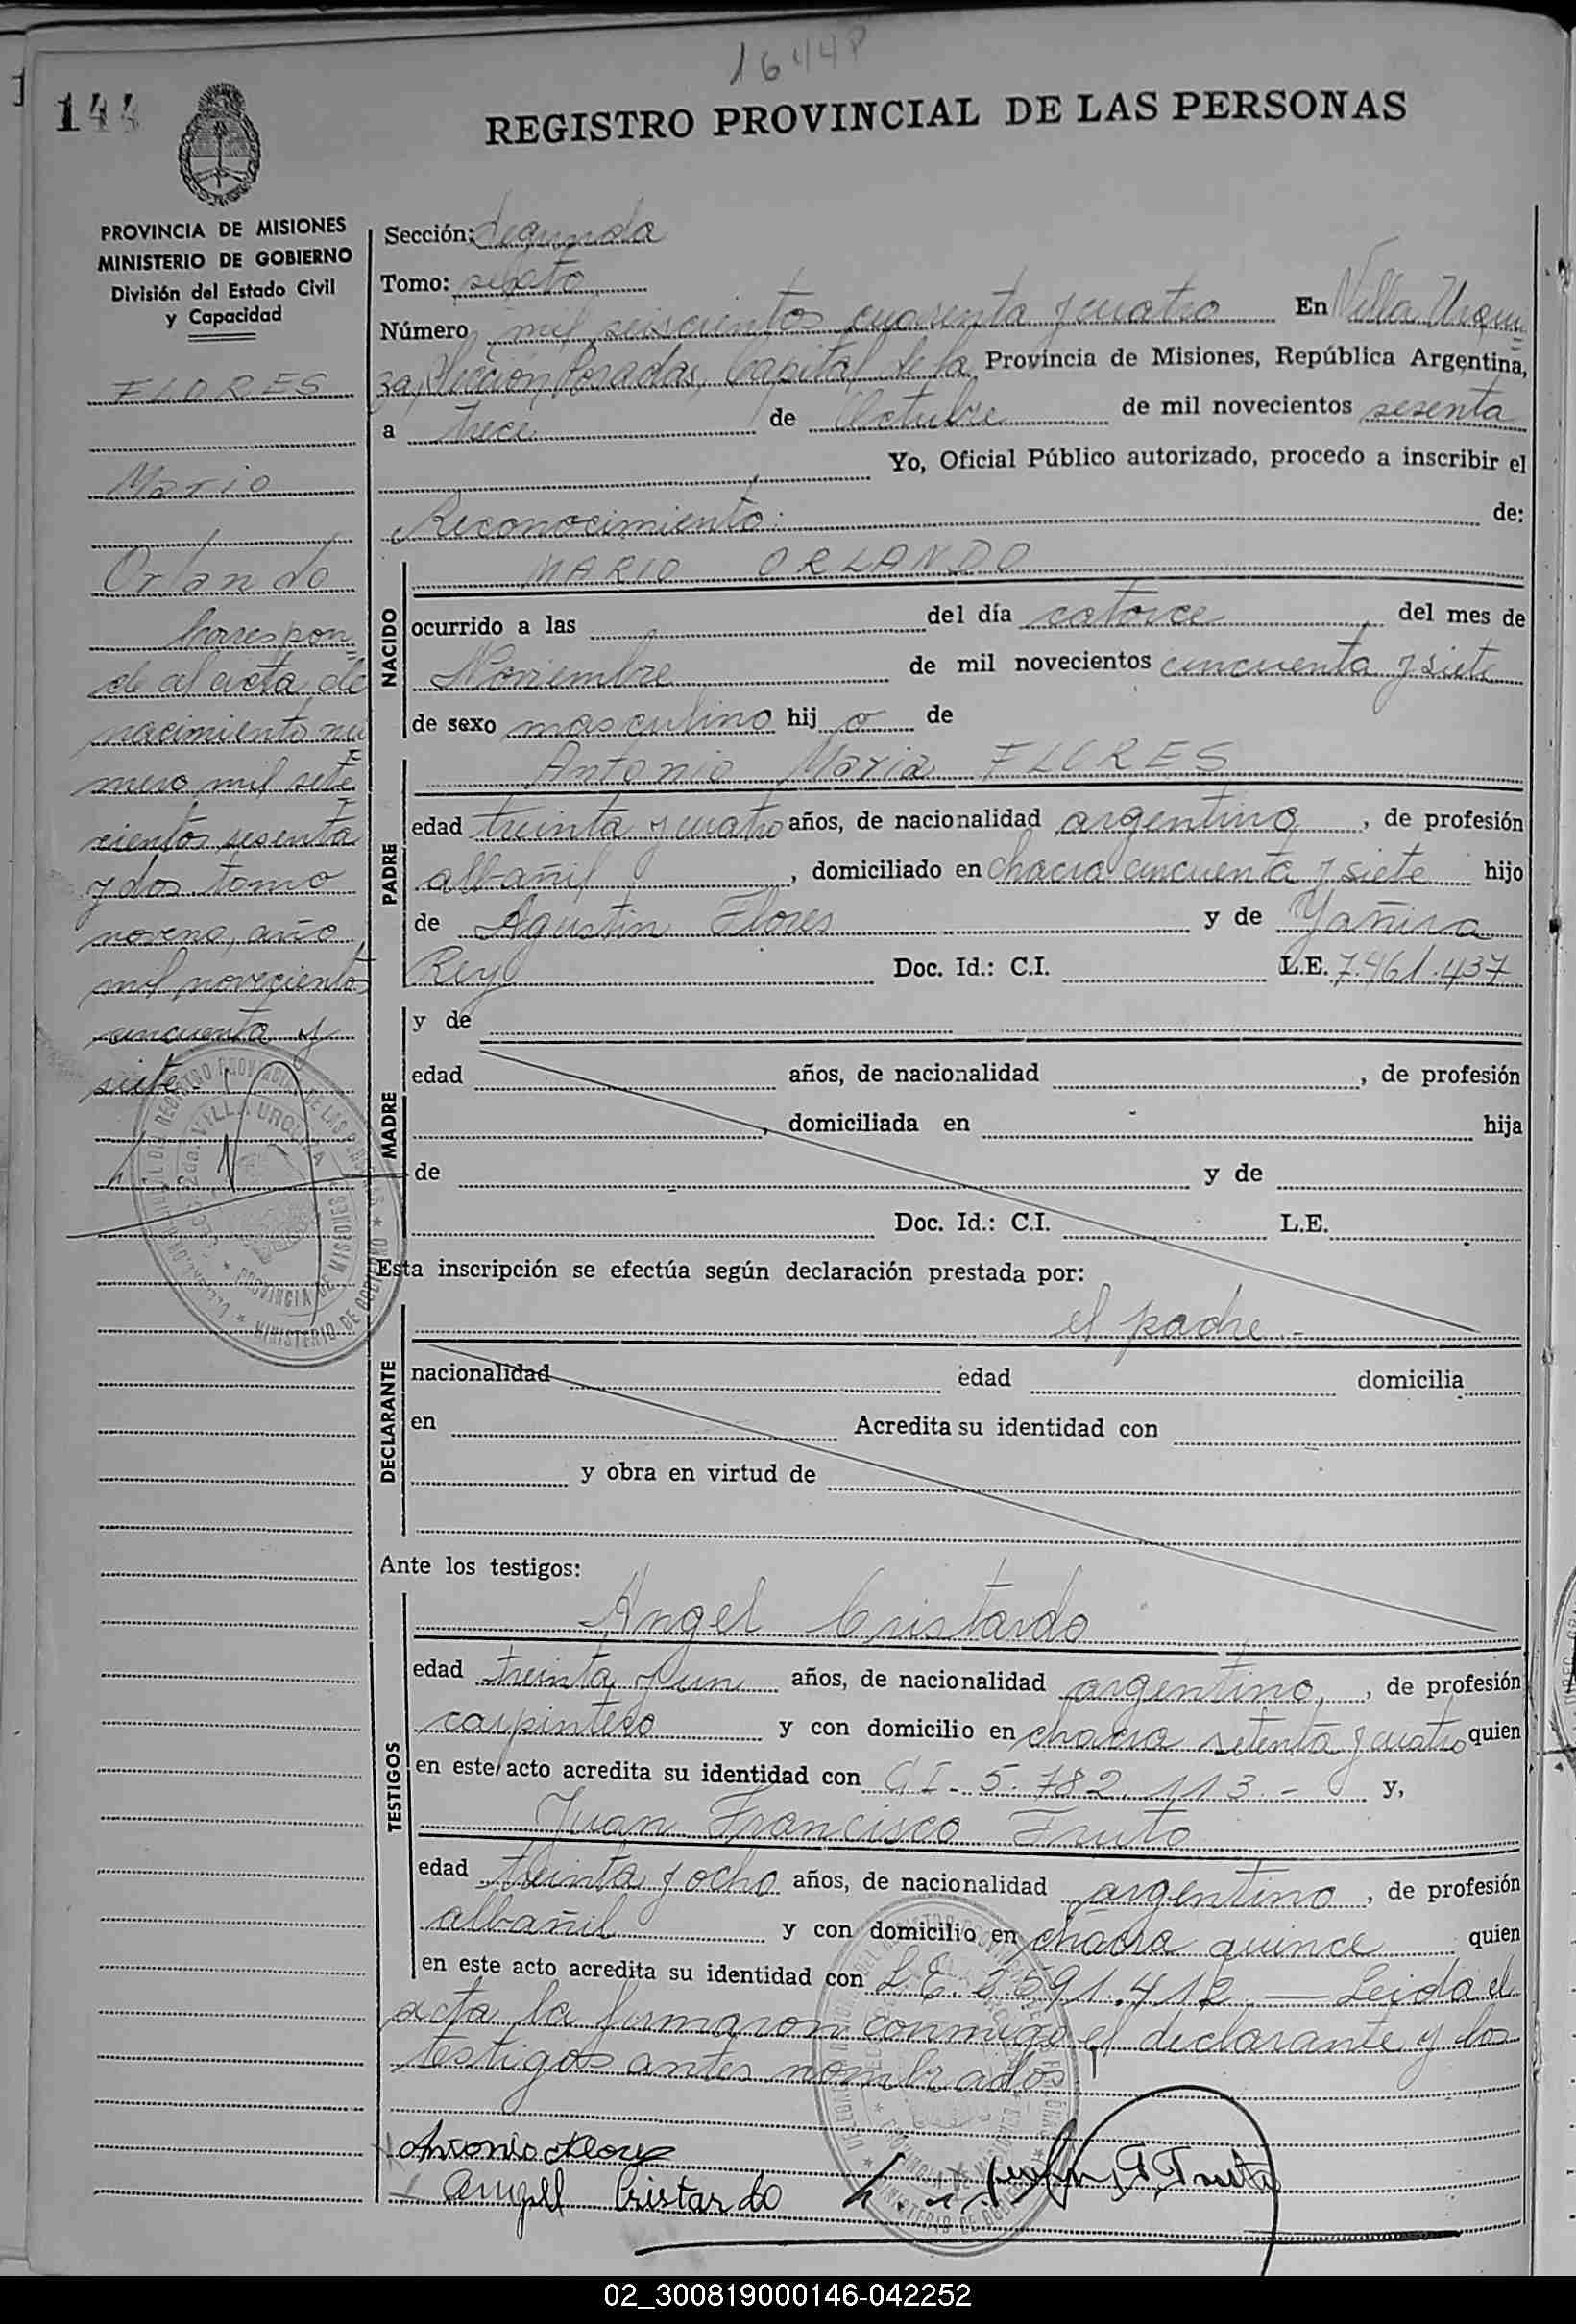 144
REGISTRO PROVINCIAL DE LAS PERSONAS
PROVINCIA DE MISIONES
MINISTERIO DE GOBIERNO
División del Estado Civil
y Capacidad
FLORES
Mario
Orlando
Correspon=
de al acta de
nacimiento nú
mero mil sete
cientos sesenta
y dos tomo
noveno, año
mil novecientos
cincuenta y
siete.-
Sección: Segunda
Tomo: sexto
Número mil seiscientos cuarenta y cuatro En Villa Urqui=
za, Sección, Posadas, Capital de la Provincia de Misiones, República Argentina,
a trece de Octubre de mil novecientos sesenta
Yo, Oficial Público autorizado, procedo a inscribir el
Reconocimiento. de:
NACIDO
MARIO ORLANDO
ocurrido a las del día catorce del mes de
Noviembre de mil novecientos cincuenta y siete
de sexo masculino hij o de
PADRE
Antonio Maria FLORES
edad treinta y cuatro años, de nacionalidad argentino, de profesión
albañil, domiciliado en chacra cincuenta y siete hijo
de Agustin Flores y de Yañira
Rey Doc. Id.: C.I. L.E. 7.461.437
MADRE
y de
edad años, de nacionalidad , de profesión
, domiciliada en hija
de y de
Doc. Id.: C.I. L.E.
Esta inscripción se efectúa según declaración prestada por:
DECLARANTE
el padre.-
nacionalidad edad domicilia
en Acredita su identidad con
y obra en virtud de
Ante los testigos:
TESTIGOS
Angel Cristardo
edad treinta y un años, de nacionalidad argentino, de profesión
carpintero y con domicilio en chacra setenta y cuatro quien
en este acto acredita su identidad con C.I. 5.782.113.- y,
Juan Francisco Fruto
edad treinta y ocho años, de nacionalidad argentino, de profesión
albañil y con domicilio en chacra quince quien
en este acto acredita su identidad con L.E. Leida el
acta la firmaron conmigo el declarante y los
testigos antes nombrados
Antonio Flores
Angel Cristardo
02_300819000146-042252